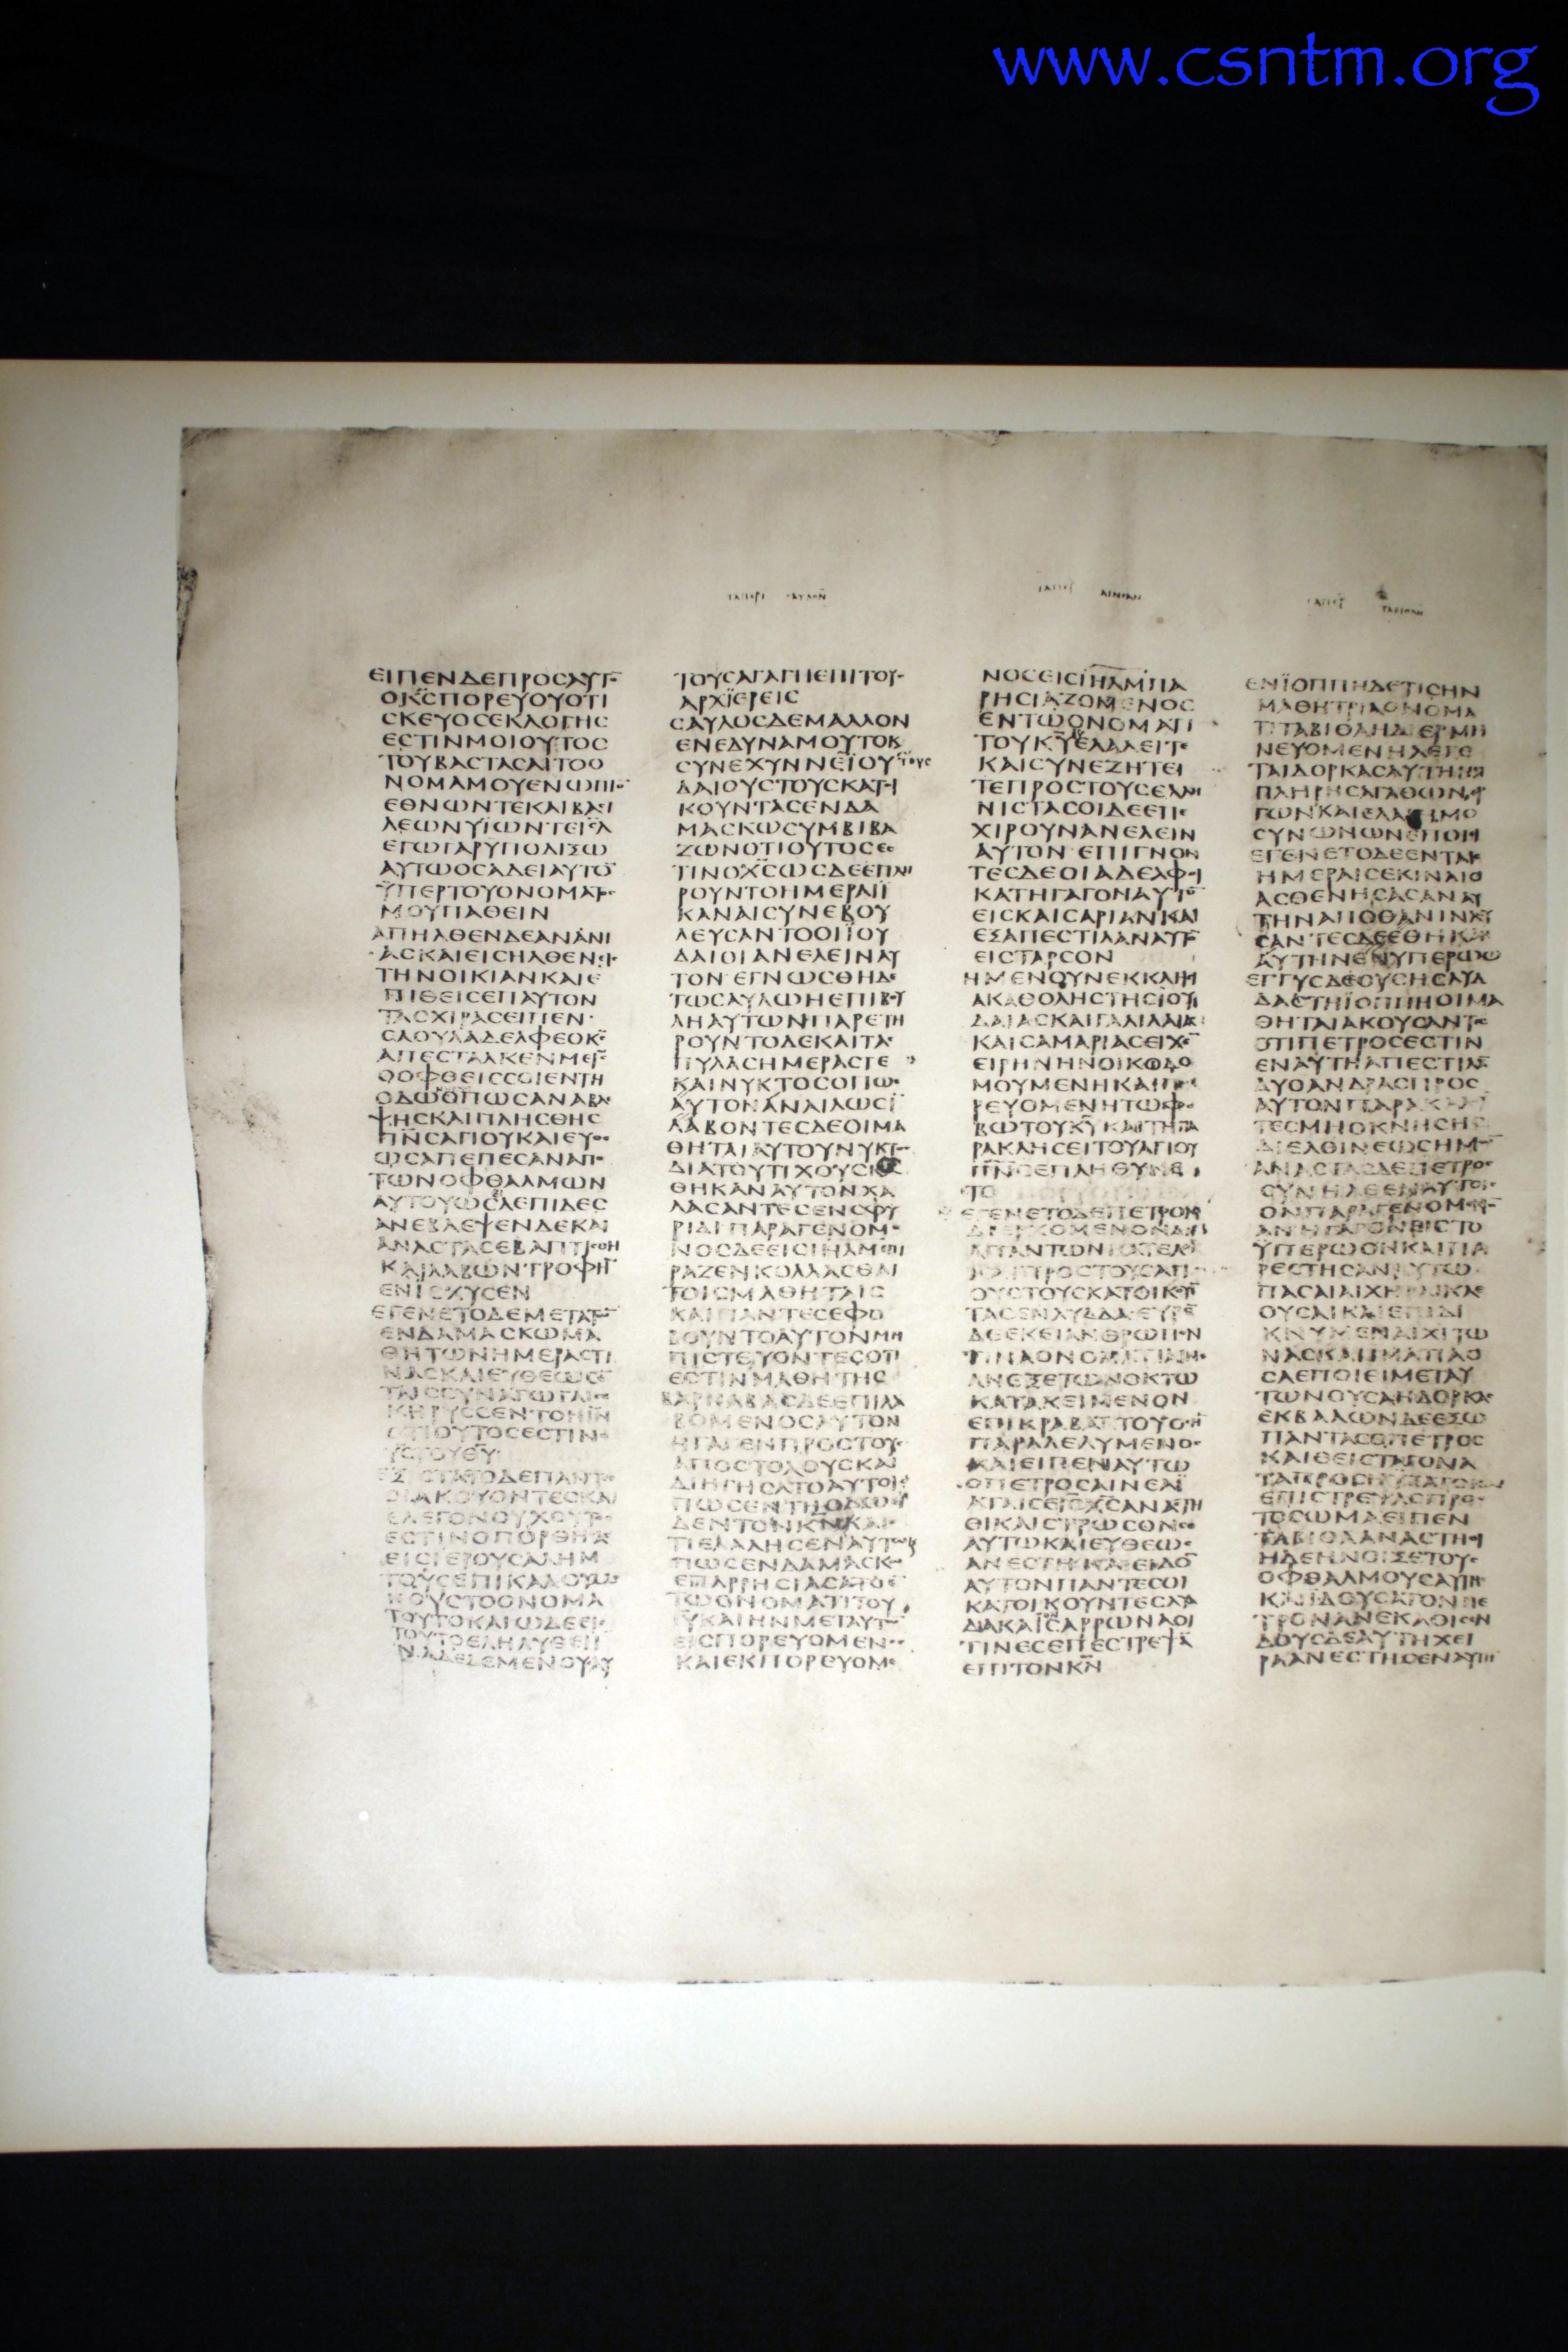 www.csntm.org
ΕΙΠΕΝΔΕΠΡΟΣΑΥΤ
ΟΚϹΠΟΡΕΥΟΥΟΤΙ
ϹΚΕΥΟϹΕΚΛΟΓΗϹ
ΕϹΤΙΝΜΟΙΟΥΤΟϹ
ΤΟΥΒΑϹΤΑϹΑΙΤΟΟ
ΝΟΜΑΜΟΥΕΝΩΠΙ
ΕΘΝΩΝΤΕΚΑΙΒΑϹΙ
ΛΕΩΝΥΪΩΝΤΕΙΗΛ
ΕΓΩΓΑΡΥΠΟΔΙΞΩ
ΑΥΤΩΟϹΑΔΕΙΑΥΤΟ
ΫΠΕΡΤΟΥΟΝΟΜΑΤ
ΜΟΥΠΑΘΕΙΝ
ΑΠΗΛΘΕΝΔΕΑΝΑΝΙ
ΑϹΚΑΙΕΙϹΗΛΘΕΝ
ΤΗΝΟΙΚΙΑΝΚΑΙΕ
ΠΙΘΕΙϹΕΠΑΥΤΟΝ
ΤΑϹΧΙΡΑϹΕΙΠΕΝ
ϹΑΟΥΛΑΔΕΛΦΕΟΚϹ
ΑΠΕϹΤΑΛΚΕΝΜΕ
ΟΟΦΘΕΙϹϹΟΙΕΝΤΗ
ΟΔΩΟΠΩϹΑΝΑΒΛΕ
ΨΗϹΚΑΙΠΛΗϹΘΗϹ
ΠΝϹΑΓΙΟΥΚΑΙΕΥ
ΩϹΑΠΕΠΕϹΑΝΑΠ
ΤΩΝΟΦΘΑΛΜΩΝ
ΑΥΤΟΥΩϹΛΕΠΙΔΕϹ
ΑΝΕΒΛΕΨΕΝΔΕΚΑΙ
ΑΝΑϹΤΑϹΕΒΑΠΤΙϹΘΗ
ΚΑΙΛΑΒΩΝΤΡΟΦΗ
ΕΝΙϹΧΥϹΕΝ
ΕΓΕΝΕΤΟΔΕΜΕΤΑΤ
ΕΝΔΑΜΑϹΚΩΜΑ
ΘΗΤΩΝΗΜΕΡΑϹΤΙ
ΝΑϹΚΑΙΕΥΘΕΩϹΕ
ΤΑΙϹϹΥΝΑΓΩΓΑΙϹ
ΕΚΗΡΥϹϹΕΝΤΟΝΙΝ
ΟΤΙΟΥΤΟϹΕϹΤΙΝ
ΥϹΤΟΥΘΥ
ΕΞΙϹΤΑΤΟΔΕΠΑΝΤ
ΟΙΑΚΟΥΟΝΤΕϹΚΑΙ
ΕΛΕΓΟΝΟΥΧΟΥΤ
ΕϹΤΙΝΟΠΟΡΘΗϹΑ
ΕΙϹΙΕΡΟΥϹΑΛΗΜ
ΤΟΥϹΕΠΙΚΑΛΟΥΜΕ
ΝΟΥϹΤΟΟΝΟΜΑ
ΤΟΥΤΟΚΑΙΩΔΕΕΙϹ
ΤΟΥΤΟΕΛΗΛΥΘΕΙ
ΝΑΔΕΔΕΜΕΝΟΥϹΑΥ
ΤΟΥϹΑΓΑΓΗΕΠΙΤΟΥ
ΑΡΧΪΕΡΕΙϹ
ϹΑΥΛΟϹΔΕΜΑΛΛΟΝ
ΕΝΕΔΥΝΑΜΟΥΤΟΚ
ϹΥΝΕΧΥΝΝΕΪΟΥ ΤΟΥϹ
ΔΑΙΟΥϹΤΟΥϹΚΑΤΟΙ
ΚΟΥΝΤΑϹΕΝΔΑ
ΜΑϹΚΩϹΥΜΒΙΒΑ
ΖΩΝΟΤΙΟΥΤΟϹΕϹ
ΤΙΝΟΧϹΩϹΔΕΕΠΛΗ
ΡΟΥΝΤΟΗΜΕΡΑΙΪ
ΚΑΝΑΙϹΥΝΕΒΟΥ
ΛΕΥϹΑΝΤΟΟΙΪΟΥ
ΔΑΙΟΙΑΝΕΛΕΙΝΑΥ
ΤΟΝΕΓΝΩϹΘΗΔΕ
ΤΩϹΑΥΛΩΗΕΠΙΒΟΥ
ΛΗΑΥΤΩΝΠΑΡΕΤΗ
ΡΟΥΝΤΟΔΕΚΑΙΤΑ
ΠΥΛΑϹΗΜΕΡΑϹΤΕ
ΚΑΙΝΥΚΤΟϹΟΠΩϹ
ΑΥΤΟΝΑΝΑΙΛΩϹΙ
ΛΑΒΟΝΤΕϹΔΕΟΙΜΑ
ΘΗΤΑΙΑΥΤΟΥΝΥΚΤ
ΔΙΑΤΟΥΤΙΧΟΥϹ
ΘΗΚΑΝΑΥΤΟΝΧΑ
ΛΑϹΑΝΤΕϹΕΝϹΦΥ
ΡΙΔΙΠΑΡΑΓΕΝΟΜ
ΝΟϹΔΕΕΙϹΙΗΛΜΕΠΙ
ΡΑΖΕΝΚΟΛΛΑϹΘΑΙ
ΤΟΙϹΜΑΘΗΤΑΙϹ
ΚΑΙΠΑΝΤΕϹΕΦΟ
ΒΟΥΝΤΟΑΥΤΟΝΜΗ
ΠΙϹΤΕΥΟΝΤΕϹΟΤΙ
ΕϹΤΙΝΜΑΘΗΤΗϹ
ΒΑΡΝΑΒΑϹΔΕΕΠΙΛΑ
ΒΟΜΕΝΟϹΑΥΤΟΝ
ΗΓΑΓΕΝΠΡΟϹΤΟΥ
ΑΠΟϹΤΟΛΟΥϹΚΑΙ
ΔΙΗΓΗϹΑΤΟΑΥΤΟΙϹ
ΠΩϹΕΝΤΗΟΔΩ
ΔΕΝΤΟΝΚΝΚΑΙ
ΤΙΕΛΑΛΗϹΕΝΑΥΤΩ
ΠΩϹΕΝΔΑΜΑϹΚ
ΕΠΑΡΡΗϹΙΑϹΑΤΟ
ΤΩΟΝΟΜΑΤΙΤΟΥ
ΙΥΚΑΙΗΝΜΕΤΑΥΤ
ΕΙϹΠΟΡΕΥΟΜΕΝ
ΚΑΙΕΚΠΟΡΕΥΟΜ
ΝΟϹΕΙϹΙΗΛΜΠΑ
ΡΗϹΙΑΖΟΜΕΝΟϹ
ΕΝΤΩΟΝΟΜΑΤΙ
ΤΟΥΚΥΕΛΑΛΕΙΤΕ
ΚΑΙϹΥΝΕΖΗΤΕΙ
ΤΕΠΡΟϹΤΟΥϹΕΛΛΗ
ΝΙϹΤΑϹΟΙΔΕΕΠΕ
ΧΙΡΟΥΝΑΝΕΛΕΙΝ
ΑΥΤΟΝΕΠΙΓΝΟΝ
ΤΕϹΔΕΟΙΑΔΕΛΦΟΙ
ΚΑΤΗΓΑΓΟΝΑΥΤ
ΕΙϹΚΑΙϹΑΡΙΑΝΚΑΙ
ΕΞΑΠΕϹΤΙΛΑΝΑΥΤ
ΕΙϹΤΑΡϹΟΝ
ΗΜΕΝΟΥΝΕΚΚΛΗϹΙ
ΑΚΑΘΟΛΗϹΤΗϹΙΟΥ
ΔΑΙΑϹΚΑΙΓΑΛΙΛΑΙΑϹ
ΚΑΙϹΑΜΑΡΙΑϹΕΙΧΕ
ΕΙΡΗΝΗΝΟΙΚΟΔΟ
ΜΟΥΜΕΝΗΚΑΙΠΟ
ΡΕΥΟΜΕΝΗΤΩΦΟ
ΒΩΤΟΥΚΥΚΑΙΤΗΠΑ
ΡΑΚΛΗϹΕΙΤΟΥΑΓΙΟΥ
ΠΝϹΕΠΛΗΘΥΝΕ
ΤΟ
ΕΓΕΝΕΤΟΔΕΠΕΤΡΟΝ
ΔΙΕΡΧΟΜΕΝΟΝΔΙΑ
ΑΠΑΝΤΩΝΚΑΤΕΛΘΙ
ΚΑΙΠΡΟϹΤΟΥϹΑΓΙ
ΟΥϹΤΟΥϹΚΑΤΟΙΚΟΥ
ΤΑϹΕΝΛΥΔΔΑΕΥΡΕ
ΔΕΕΚΕΙΑΝΘΡΩΠΟΝ
ΤΙΝΑΟΝΟΜΑΤΙΑΙΝΕ
ΑΝΕΞΕΤΩΝΟΚΤΩ
ΚΑΤΑΚΕΙΜΕΝΟΝ
ΕΠΙΚΡΑΒΑΚΤΟΥΟϹΗ
ΠΑΡΑΛΕΛΥΜΕΝΟϹ
ΚΑΙΕΙΠΕΝΑΥΤΩ
ΟΠΕΤΡΟϹΑΙΝΕΑΪ
ΑΤΑΙϹΕΙϹΧϹΑΝΑϹΤΗ
ΘΙΚΑΙϹΤΡΩϹΟΝϹΕ
ΑΥΤΩΚΑΙΕΥΘΕΩϹ
ΑΝΕϹΤΗΚΑΙΕΙΔΟ
ΑΥΤΟΝΠΑΝΤΕϹΟΙ
ΚΑΤΟΙΚΟΥΝΤΕϹΛΥΔ
ΔΑΚΑΙϹΑΡΡΩΝΑΟΙ
ΤΙΝΕϹΕΠΕϹΤΡΕΨΑ
ΕΠΙΤΟΝΚΝ
ΕΝΪΟΠΠΗΔΕΤΙϹΗΝ
ΜΑΘΗΤΡΙΑΟΝΟΜΑ
ΤΙΤΑΒΙΘΑΗΔΙΕΡΜΗ
ΝΕΥΟΜΕΝΗΛΕΓΕ
ΤΑΙΔΟΡΚΑϹΑΥΤΗΗΝ
ΠΛΗΡΗϹΑΓΑΘΩΝΕΡ
ΓΩΝΚΑΙΕΛΕΗΜΟ
ϹΥΝΩΝΩΝΕΠΟΙΕΙ
ΕΓΕΝΕΤΟΔΕΕΝΤΑΙϹ
ΗΜΕΡΑΙϹΕΚΙΝΑΙϹ
ΑϹΘΕΝΗϹΑϹΑΝΑΥ
ΤΗΝΑΠΟΘΑΝΙΝΛΟΥ
ϹΑΝΤΕϹΔΕΕΘΗΚΑΝ
ΑΥΤΗΝΕΝΥΠΕΡΩΩ
ΕΓΓΥϹΔΕΟΥϹΗϹΛΥΔ
ΔΑϹΤΗΪΟΠΠΗΟΙΜΑ
ΘΗΤΑΙΑΚΟΥϹΑΝΤΕϹ
ΟΤΙΠΕΤΡΟϹΕϹΤΙΝ
ΕΝΑΥΤΗΑΠΕϹΤΙΛΑ
ΔΥΟΑΝΔΡΑϹΠΡΟϹ
ΑΥΤΟΝΠΑΡΑΚΑΛΟΥ
ΤΕϹΜΗΟΚΝΗϹΗϹ
ΔΙΕΛΘΙΝΕΩϹΗΜ
ΑΝΑϹΤΑϹΔΕΠΕΤΡΟϹ
ϹΥΝΗΛΘΕΝΑΥΤΟΙϹ
ΟΝΠΑΡΑΓΕΝΟΜΕ
ΑΝΗΓΑΓΟΝΕΙϹΤΟ
ΫΠΕΡΩΟΝΚΑΙΠΑ
ΡΕϹΤΗϹΑΝΑΥΤΩ
ΠΑϹΑΙΑΙΧΗΡΑΙΚΛΑΙ
ΟΥϹΑΙΚΑΙΕΠΙΔΙ
ΚΝΥΜΕΝΑΙΧΙΤΩ
ΝΑϹΚΑΙΪΜΑΤΙΑΟ
ϹΑΕΠΟΙΕΙΜΕΤΑΥ
ΤΩΝΟΥϹΑΗΔΟΡΚΑϹ
ΕΚΒΑΛΩΝΔΕΕΞΩ
ΠΑΝΤΑϹΟΠΕΤΡΟϹ
ΚΑΙΘΕΙϹΤΑΓΟΝΑ
ΤΑΠΡΟϹΗΥΞΑΤΟΚΑΙ
ΕΠΙϹΤΡΕΨΑϹΠΡΟϹ
ΤΟϹΩΜΑΕΙΠΕΝ
ΤΑΒΙΘΑΑΝΑϹΤΗΘΙ
ΗΔΕΗΝΟΙΞΕΤΟΥϹ
ΟΦΘΑΛΜΟΥϹΑΥΤΗϹ
ΚΑΙΪΔΟΥϹΑΤΟΝΠΕ
ΤΡΟΝΑΝΕΚΑΘΙϹΕΝ
ΔΟΥϹΔΕΑΥΤΗΧΕΙ
ΡΑΑΝΕϹΤΗϹΕΝΑΥΤΗ